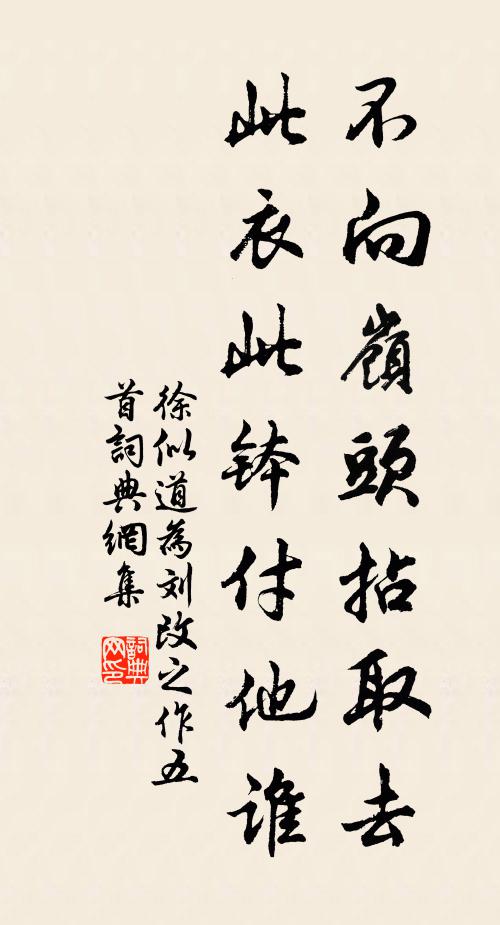 不向嶺頭拈取去
此衣此鉢付他誰
徐似道為刘改之作五
首詞典網集
詞典
网印